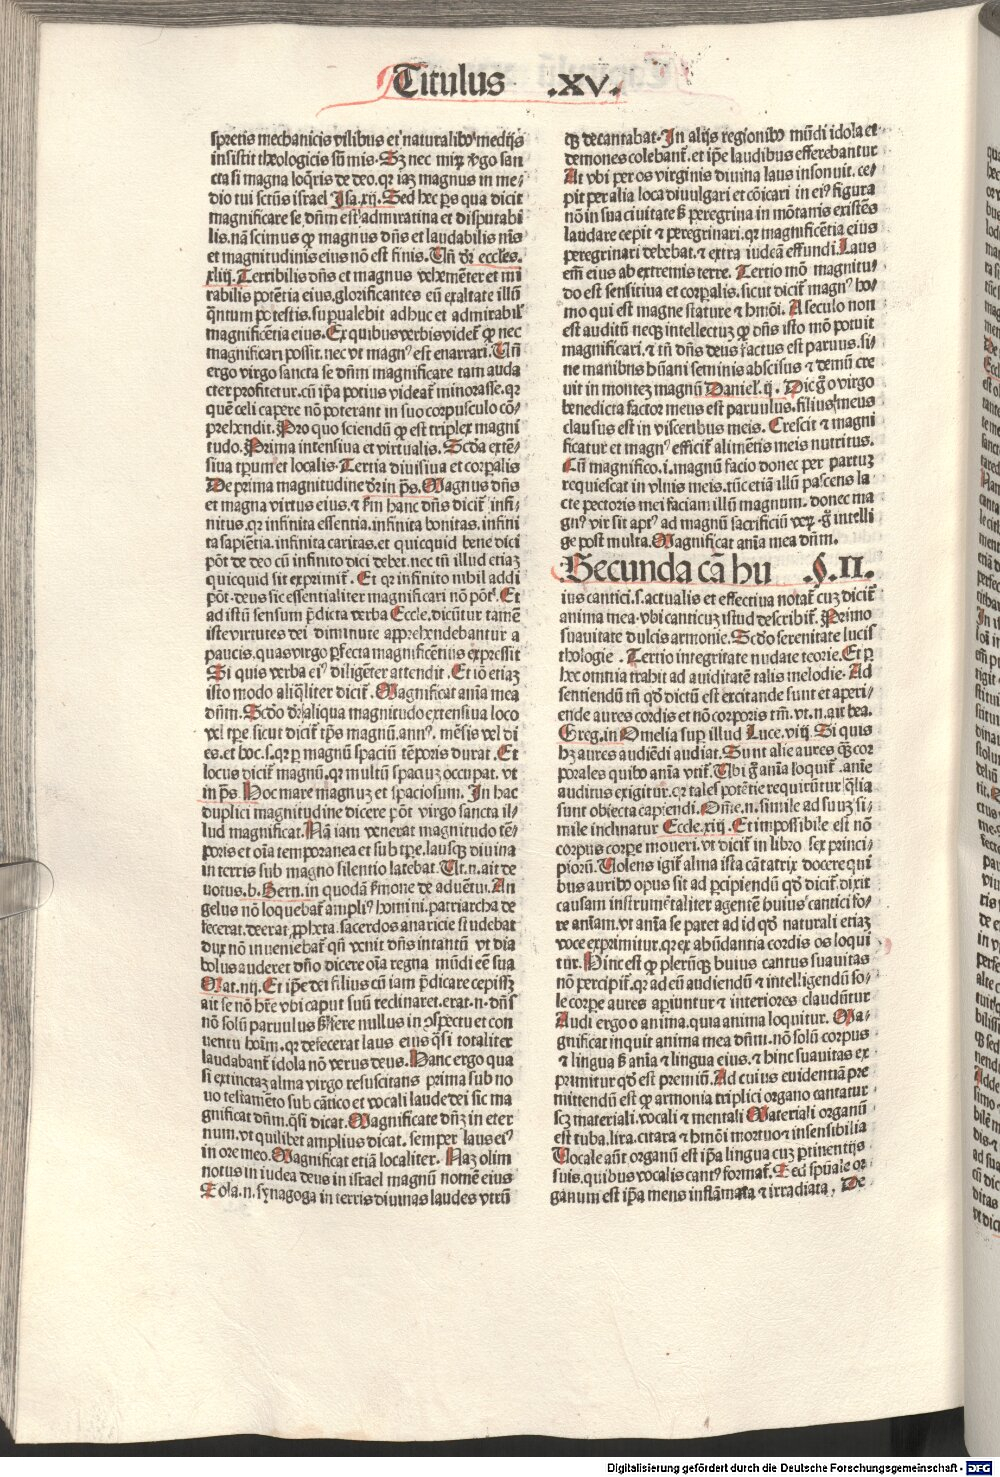 Titulus .XV.
spretis mechanicis vilibus et naturalibꝰ medijs
insistit theologicis sūmis. Sʒ nec mirꝫ ꝟgo san
cta si magna loqͥris de deo. qꝛ iaʒ magnus in me⸗
dio tui sctūs israel Isa.xij. Sed hec ps qua dicit
magnificare se dn̄m est admiratiua et disputabi
lis. nā scimus ꝙ magnus dn̄s et laudabilis nīs
et magnitudinis eius nō est finis. Un̄ dr̄ eccles.
xliij. Terribilis dn̄s et magnus vehemēter et mi
rabilis potētia eius. glorificantes eū exaltate illū
qͣntum potestis. supualebit adhuc et admirabilꝭ
magnificētia eius. Ex quibus verbis videt̄ ꝙ nec
magnificari possit. nec vt magnꝰ est enarrari. Un̄
ergo virgo sancta se dn̄m magnificare tam auda
cter profitetur. cū ip̄a potius videat̄ minorasse. qꝛ
quē celi capere nō poterant in suo corpusculo cō⸗
prehendit. Pro quo sciendū ꝙ est triplex magni
tudo. Prima intensiua et virtualis. Scd̄a extē⸗
siua tp̄um et localis. Tertia diuisiua et corꝑalis
De prima magnitudine dr̄ in ps̄. Magnus dn̄s
et magna virtus eius. ⁊ ẜm hanc dn̄s dicit̄ infi⸗
nitus. qꝛ infinita essentia. infinita bonitas. infini
ta sapiētia. infinita caritas. et quicquid bene dici
pōt de deo cū infinito dici debet. nec tn̄ illud etiaʒ
quicquid sit exprimit̄. Et qꝛ infinito nihil addi
pōt. deus sic essentialiter magnificari nō pōt. Et
ad istū sensum p̄dicta verba Eccle. dicūtur tamē
iste virtutes dei diminute apprehendebantur a
paucis. quas virgo ꝑfecta magnificētius expressit
Si quis verba eiꝰ diligēter attendit. Et iō etiaʒ
isto modo aliqͣliter dicit̄. Magnificat aīa mea
dn̄m. Scd̄o dr̄ aliqua magnitudo extensiua loco
vel tp̄e sicut dicit̄ tp̄s magnū. annꝰ. mēsis vel di
es. et hoc .s. qꝛ ꝑ magnū spaciū tēporis durat. Et
locus dicit̄ magnū. qꝛ multū spacuʒ occupat. vt
in ps̄. Hoc mare magnuʒ et spaciosum. In hac
duplici magnitudine dicere pōt virgo sancta il⸗
lud magnificat. Nā iam venerat magnitudo tē⸗
poris et oīa temporanea et sub tp̄e. lausqꝫ diuina
in terris sub magno silentio latebat. Ut.n. ait de
uotus. b. Bern. in quodā ẜmone de aduētu. An
gelus nō loquebat̄ ampliꝰ homini. patriarcha de
fecerat. deerat ꝓpheta. sacerdos auaricie studebat
dux nō inueniebat̄ qn̄ venit dn̄s intantū vt dia
bolus auderet dn̄o dicere oīa regna mūdi eē sua
Mat.iiij. Et ip̄e dei filius cū iam p̄dicare cepissʒ
ait se nō hr̄e vbi caput suū reclinaret. erat.n. dn̄s
nō solū paruulus ẜ fere nullus in ↄspectu et con
uentu hoīm. qꝛ defecerat laus eius qͣsi totaliter
laudabant̄ idola nō verus deus. Hanc ergo qua
si extinctaʒ alma virgo resuscitans prima sub no
uo testamēto sub cātico et vocali laude dei sic ma
gnificat dn̄m. qͣsi dicat. Magnificate dn̄ʒ in eter
num. vt quilibet amplius dicat. semper laus eiꝰ
in ore meo. Magnificat etiā localiter. Naʒ olim
notus in iudea deus in israel magnū nomē eius
Sola.n. synagoga in terris diuinas laudes vtrū
qꝫ decantabat. In alijs regionibꝰ mūdi idola et
demones colebant̄. et ip̄e laudibus efferebantur
At vbi per os virginis diuina laus insonuit. ce⸗
pit per alia loca diuulgari et cōicari in eiꝰ figura
nō in sua ciuitate ẜ peregrina in mōtanis existēs
laudare cepit ⁊ peregrinari. qꝛ magnificētia eius
peregrinari debebat. ⁊ extra iudeā effundi. Laus
em̄ eius ab extremis terre. Tertio mō magnitu⸗
do est sensitiua et corꝑalis. sicut dicit̄ magnꝰ ho⸗
mo qui est magne stature ⁊ hmōi. A seculo non
est auditū neqꝫ intellectuʒ ꝙ dn̄s isto mō potuit
magnificari. ⁊ tn̄ dn̄s deus factus est paruus. si⸗
ne manibus hūani seminis abscisus ⁊ demū cre
uit in monteʒ magnū Daniel.ij. Dic g̊ o virgo
benedicta factor meus est paruulus. filius meus
clausus est in visceribus meis. Crescit ⁊ magni
ficatur et magnꝰ efficit̄ alimētis meis nutritus.
Cū magnifico .i. magnū facio donec per partuʒ
requiescat in vlnis meis. tūc etiā illū pascens la
cte pectoris mei faciam illū magnum. donec ma
gnꝰ vir sit aptꝰ ad magnū sacrificiū verꝫ. g̊ intelli
ge post multa. Magnificat aīa mea dn̄m.
Secunda cā hu .§.II.
ius cantici .s. actualis et effectiua notat̄ cuʒ dicit̄
anima mea. vbi canticuʒ istud describit̄. Primo
suauitate dulcis armonie. Scd̄o serenitate lucis
thologie. Tertio integritate nudate teorie. Et ꝑ
hec omnia trahit ad auiditatē talis melodie. Ad
sentiendū tn̄ qd̄ dictū est excitande sunt et aperi⸗
ende aures cordis et nō corporis tm̄. vt.n. ait bea.
Greg. in Omelia sup illud Luce.viij. Si quis
hʒ aures audiēdi audiat. Sunt alie aures qͣʒ cor
porales quibꝰ anīa vtit̄. Ubi g̊ anīa loquit̄. anīe
auditus exigitur. qꝛ tales potētie requirūtur qͣlia
sunt obiecta capiendi. Om̄e.n. simile ad suuʒ si⸗
mile inclinatur Eccle.xiij. Et impossibile est nō
corpus corꝑe moueri. vt dicit̄ in libro sex princi⸗
piorū. Uolens igit̄ alma ista cātatrix docere qui
bus auribꝰ opus sit ad ꝑcipiendū qd̄ dicit̄. dixit
causam instrumētaliter agentē huius cantici fo⸗
re anīam. vt anīa se paret ad id qd̄ naturali etiaʒ
voce exprimitur. qꝛ ex abūdantia cordis os loqui
tur. Hinc est ꝙ plerūqꝫ huius cantus suauitas
nō percipit̄. qꝛ ad eū audiendū ⁊ intelligendū so⸗
le corꝑe aures aꝑiuntur ⁊ interiores claudūtur
Audi ergo o anima. quia anima loquitur. Ma⸗
gnificat inquit anima mea dn̄m. nō solū corpus
⁊ lingua ẜ anīa ⁊ lingua eius. ⁊ hinc suauitas ex
primitur qd̄ est premiū. Ad cuius euidentiā pre
mittendū est ꝙ armonia triplici organo cantatur
scʒ materiali. vocali ⁊ mentali Materiali organū
est tuba. lira. citara ⁊ hmōi mortuo ⁊ insensibilia
Uocale aūt organū est ip̄a lingua cuʒ ꝑtinentijs
suis. quibus vocalis cantꝰ format̄. Sed sp̄uale or
ganum est ip̄a mens inflāmata ⁊ irradiata. De
Digitalisierung gefördert durch die Deutsche Forschungsgemeinschaft - DFG